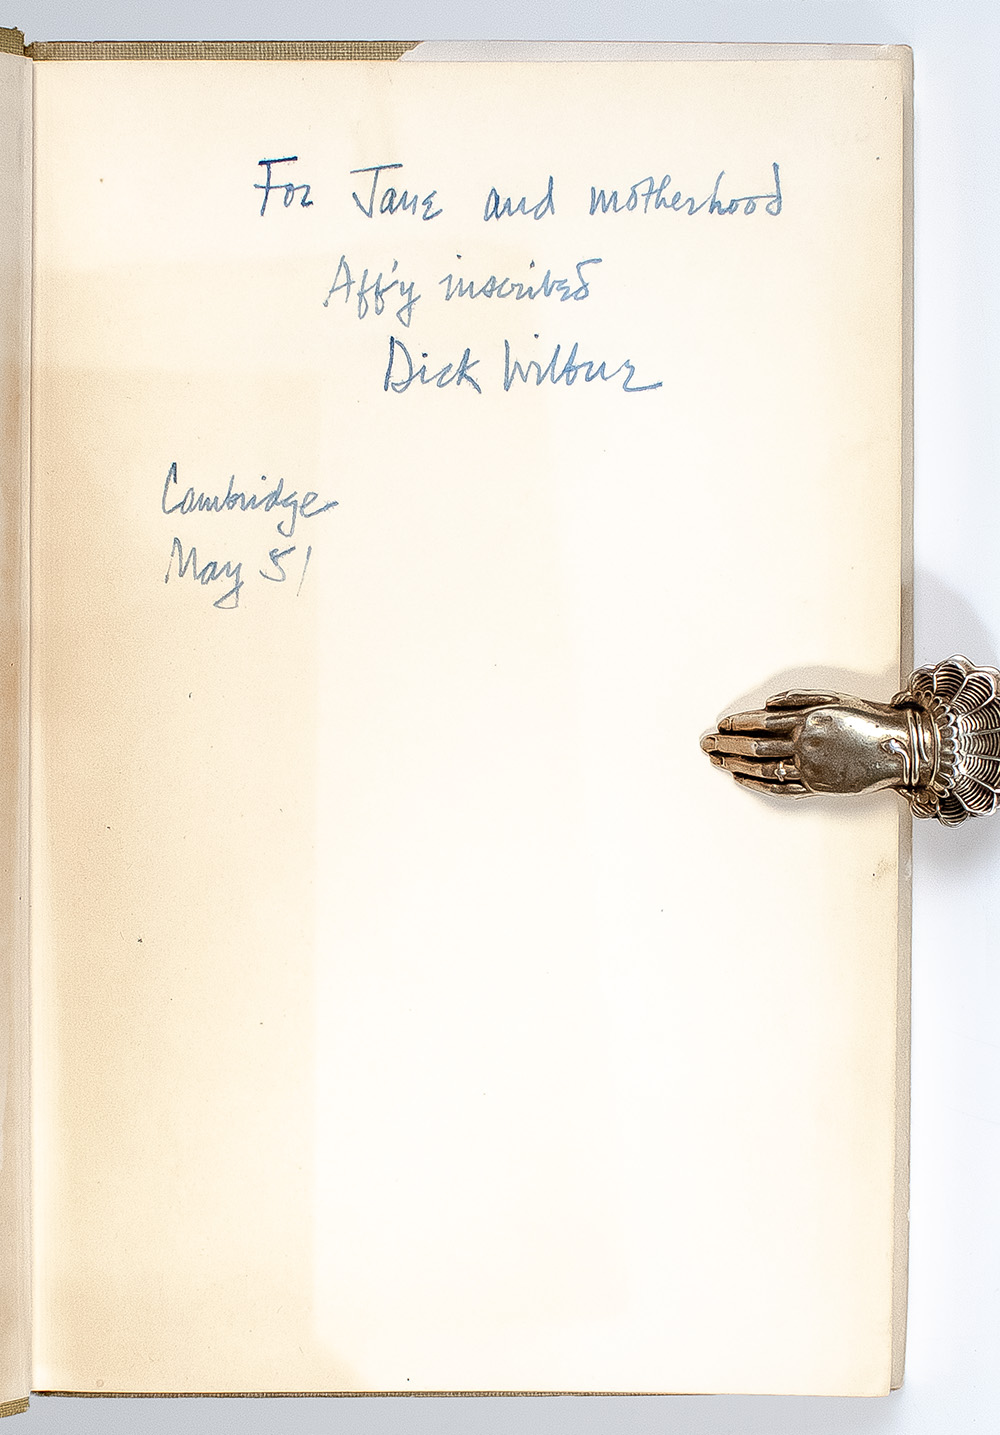 For Jane and motherhood
Aff'y inscribed
Dick Wilbur
Cambridge
May 51